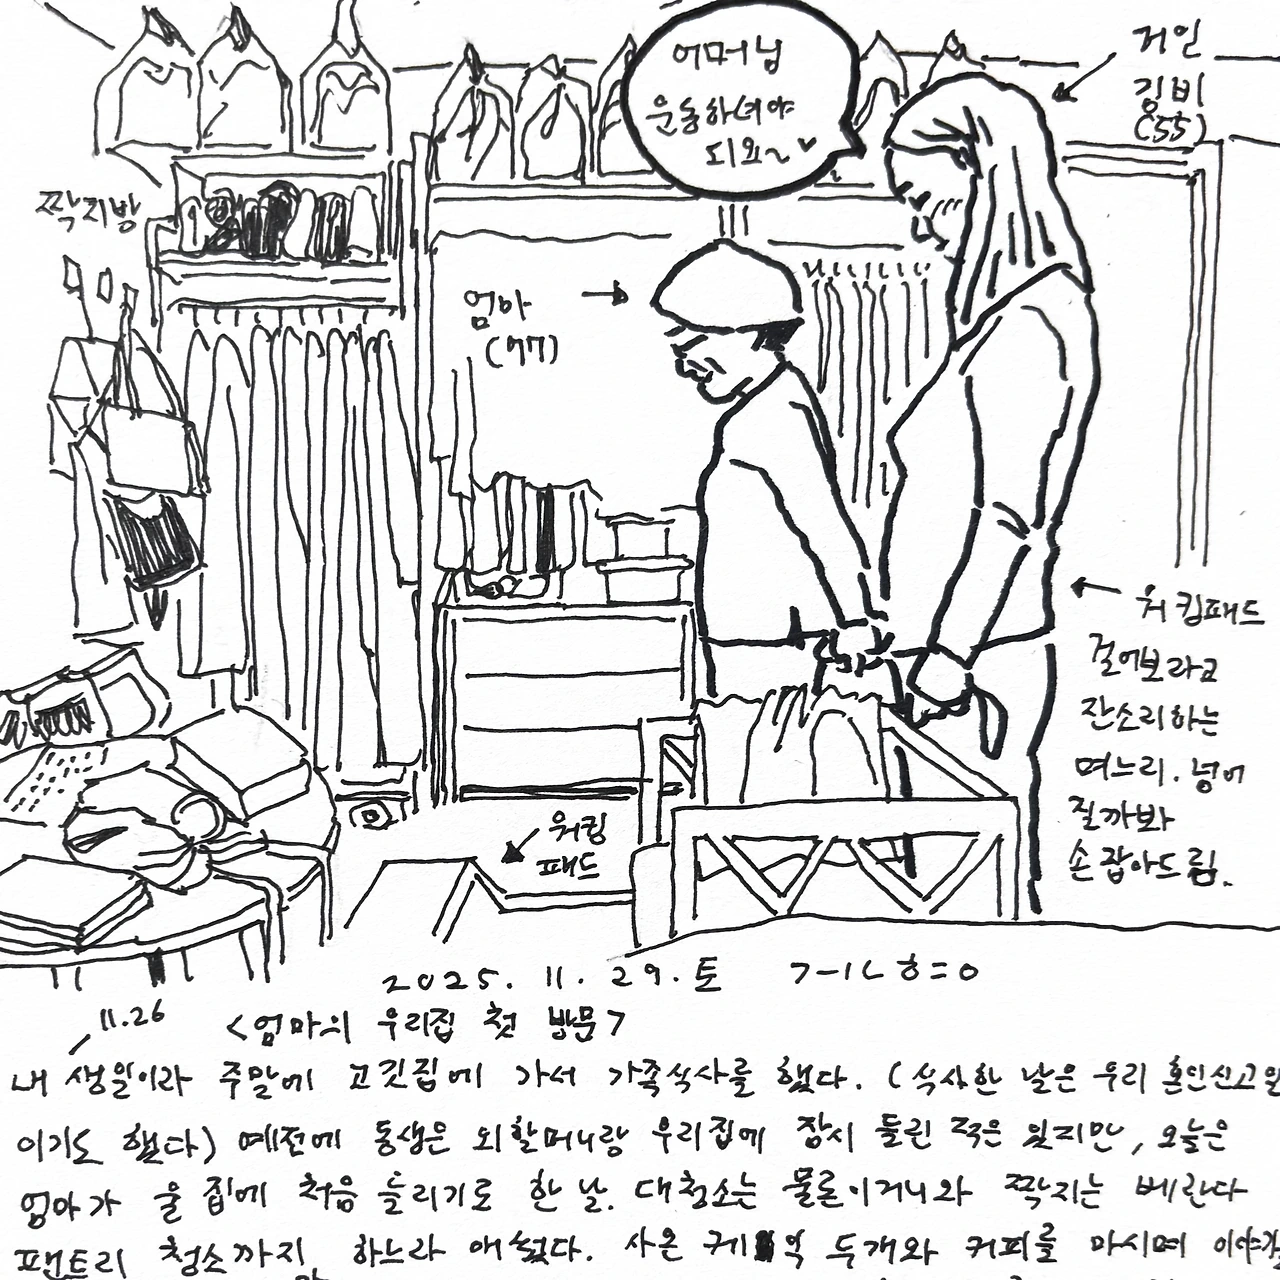 어머님
운동하셔야
되요~♥
거인
김비
(55)
짝지방
엄마
(77)
워킹패드
걸어보라고
잔소리하는
며느리. 넘어
질까봐
손 잡아드림.
워킹
패드
2025. 11. 29. 토
11.26
<엄마의 우리집 첫 방문>
내 생일이라 주말에 고깃집에 가서 가족식사를 했다. (식사한 날은 우리 혼인신고일
이기도 했다) 예전에 동생은 외할머니랑 우리집에 잠시 들린 적은 있지만, 오늘은
엄마가 울 집에 처음 들리기로 한 날. 대청소는 물론이거니와 짝지는 베란다
팬트리 청소까지 하느라 애썼다. 사온 케익 두개와 커피를 마시며